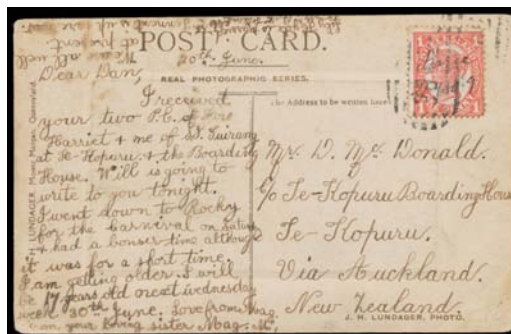 at present
POST CARD.
20th June.
Dear Dan,
REAL PHOTOGRAPHIC SERIES.
The Address to be written here
I received
your two P.C. of
Harriet & me of W.
at Te-Kopuru. & the Boarding
House. Will is going to
write to you tonight.
I went down to Rocky
for the Carnival on
& had a bonser time although
it was for a short time.
I am getting older. I will
be 17 years old next Wednesday
week 30th June. Love from Mag.
I am your loving sister Mag.
Mr. D. Mc Donald.
c/o Te-Kopuru Boarding House
Te-Kopuru.
Via Auckland.
New Zealand.
J. H. LUNDAGER, PHOTO.
H. LUNDAGER, Mount Morgan, Queensland.